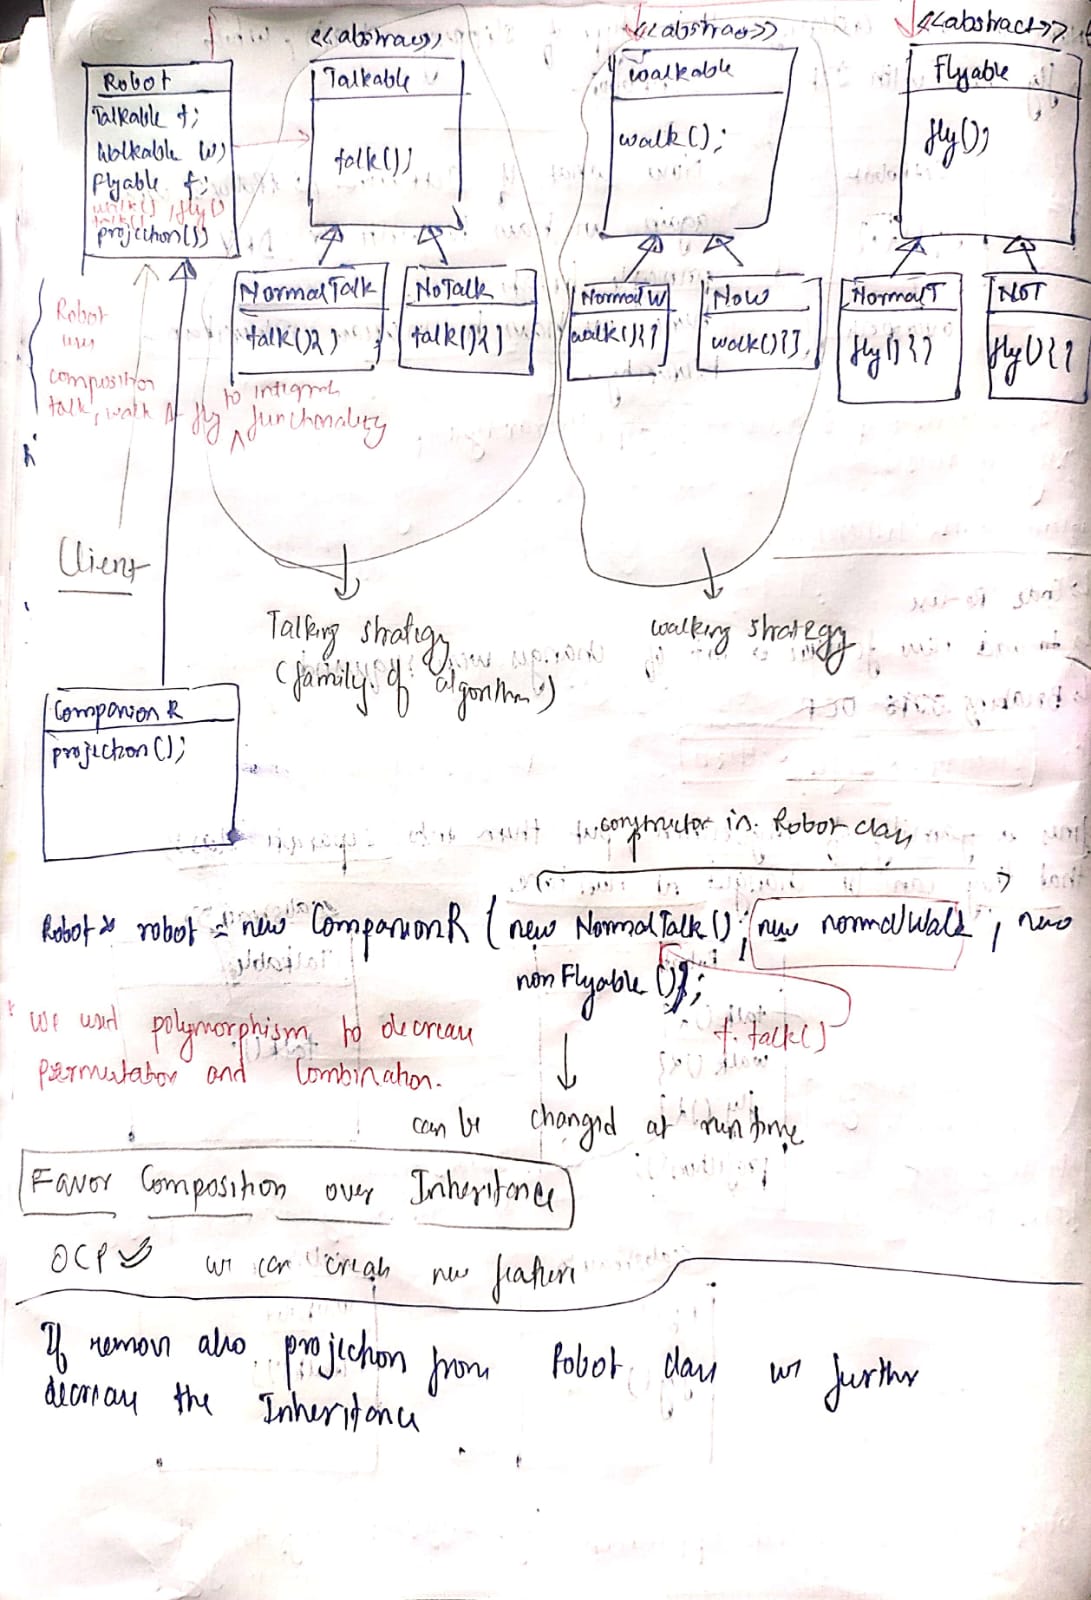 <<abstrac>>
<<abstrac>>
<<abstract>>
Robot
Talkable t;
Walkable w;
Flyable f;
walk() , fly()
talk()
projection()
Talkable
talk();
Walkable
walk();
Flyable
fly();
NormalTalk
talk(){}
NoTalk
talk(){}
NormalW
walk(){}
NoW
walk(){}
NormalT
fly(){}
NOT
fly(){}
Robot
uses
composition
talk, walk & fly to integrate functionality
Client
Talking strategy
(family of algorithm)
walking strategy
CompanionR
projection();
constructor in Robot class
Robot* robot = new CompanionR (new NormalTalk(), new normalWalk , new
nonFlyable ());
t.talk()
* we used polymorphism to decrease
permutation and Combination.
can be changed at run time
Favor Composition over Inheritance
OCP we can create new feature
If remove also projection from Robot class we further
decrease the Inheritance